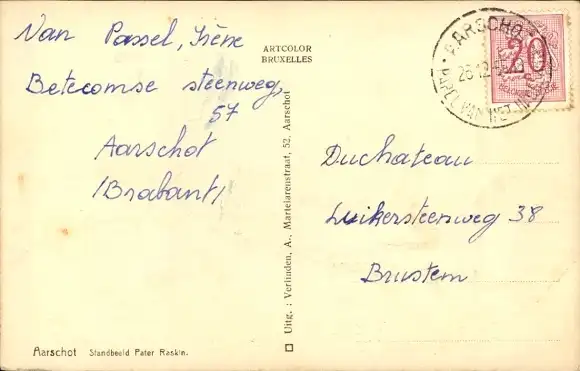 Van Passel, Irène
Betecomse steenweg,
57
Aarschot
/Brabant/
ARTCOLOR
BRUXELLES
Uitg. : Verlinden, A., Martelarenstraat, 52, Aarschot
AARSCHO
20
Duchateau
Luikersteenweg 38
Brustem
Aarschot Standbeeld Pater Raskin.